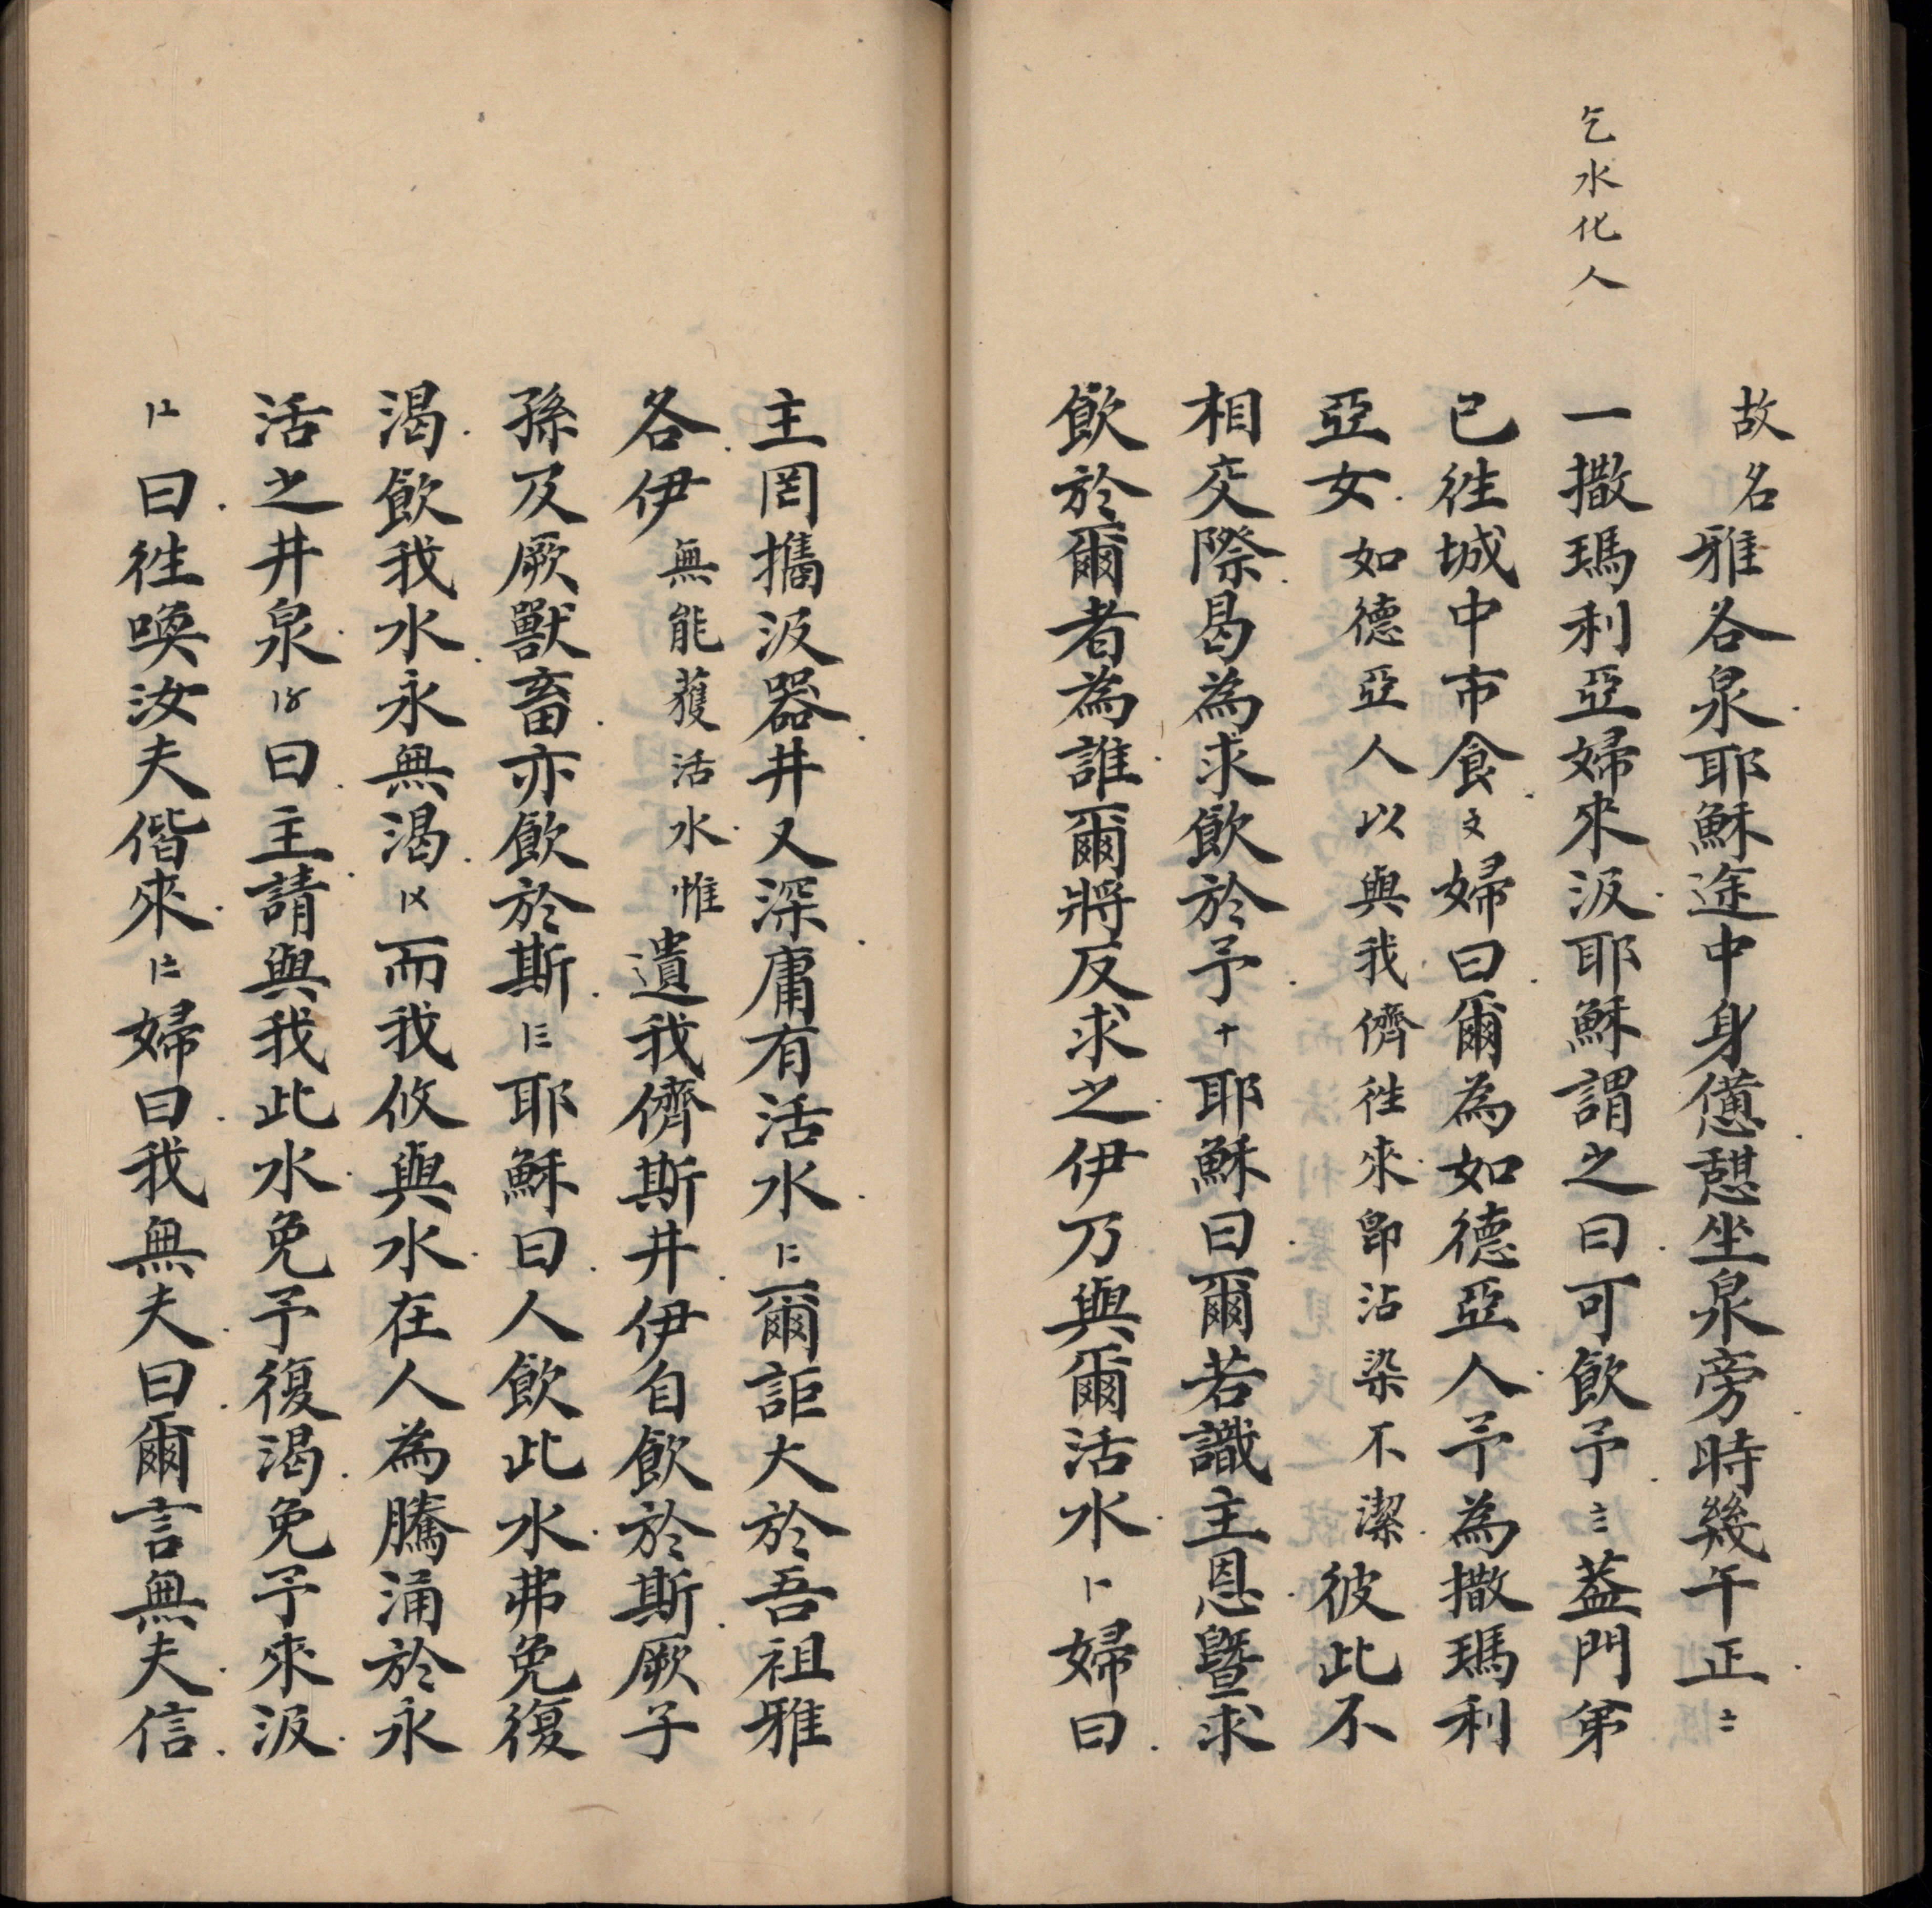 乞水化人
故名雅各泉耶穌途中身憊憇坐泉旁時幾午正〨
一撒瑪利亞婦來汲耶穌謂之曰可飲予〨葢門弟
已徃城中市食〩婦曰爾為如德亞人予為撒瑪利
亞女如德亞人以與我儕徃來卽沾染不潔彼此不
相交際曷為求飲於予十耶穌曰爾若識主恩曁求
飲於爾者為誰爾將反求之伊乃與爾活水〸婦曰
主罔攜汲器井又深庸有活水〸二爾詎大於吾祖雅
各伊無能獲活水惟遺我儕斯井伊自飲於斯厥子
孫及厥獸畜亦飲於斯〸三耶穌曰人飲此水弗免復
渴飲我水永無渴〸〤而我攸與水在人為騰涌於永
活之井泉〸〥曰主請與我此水免予復渴免予來汲
〸〦曰徃喚汝夫偕來〸〧婦曰我無夫曰爾言無夫信